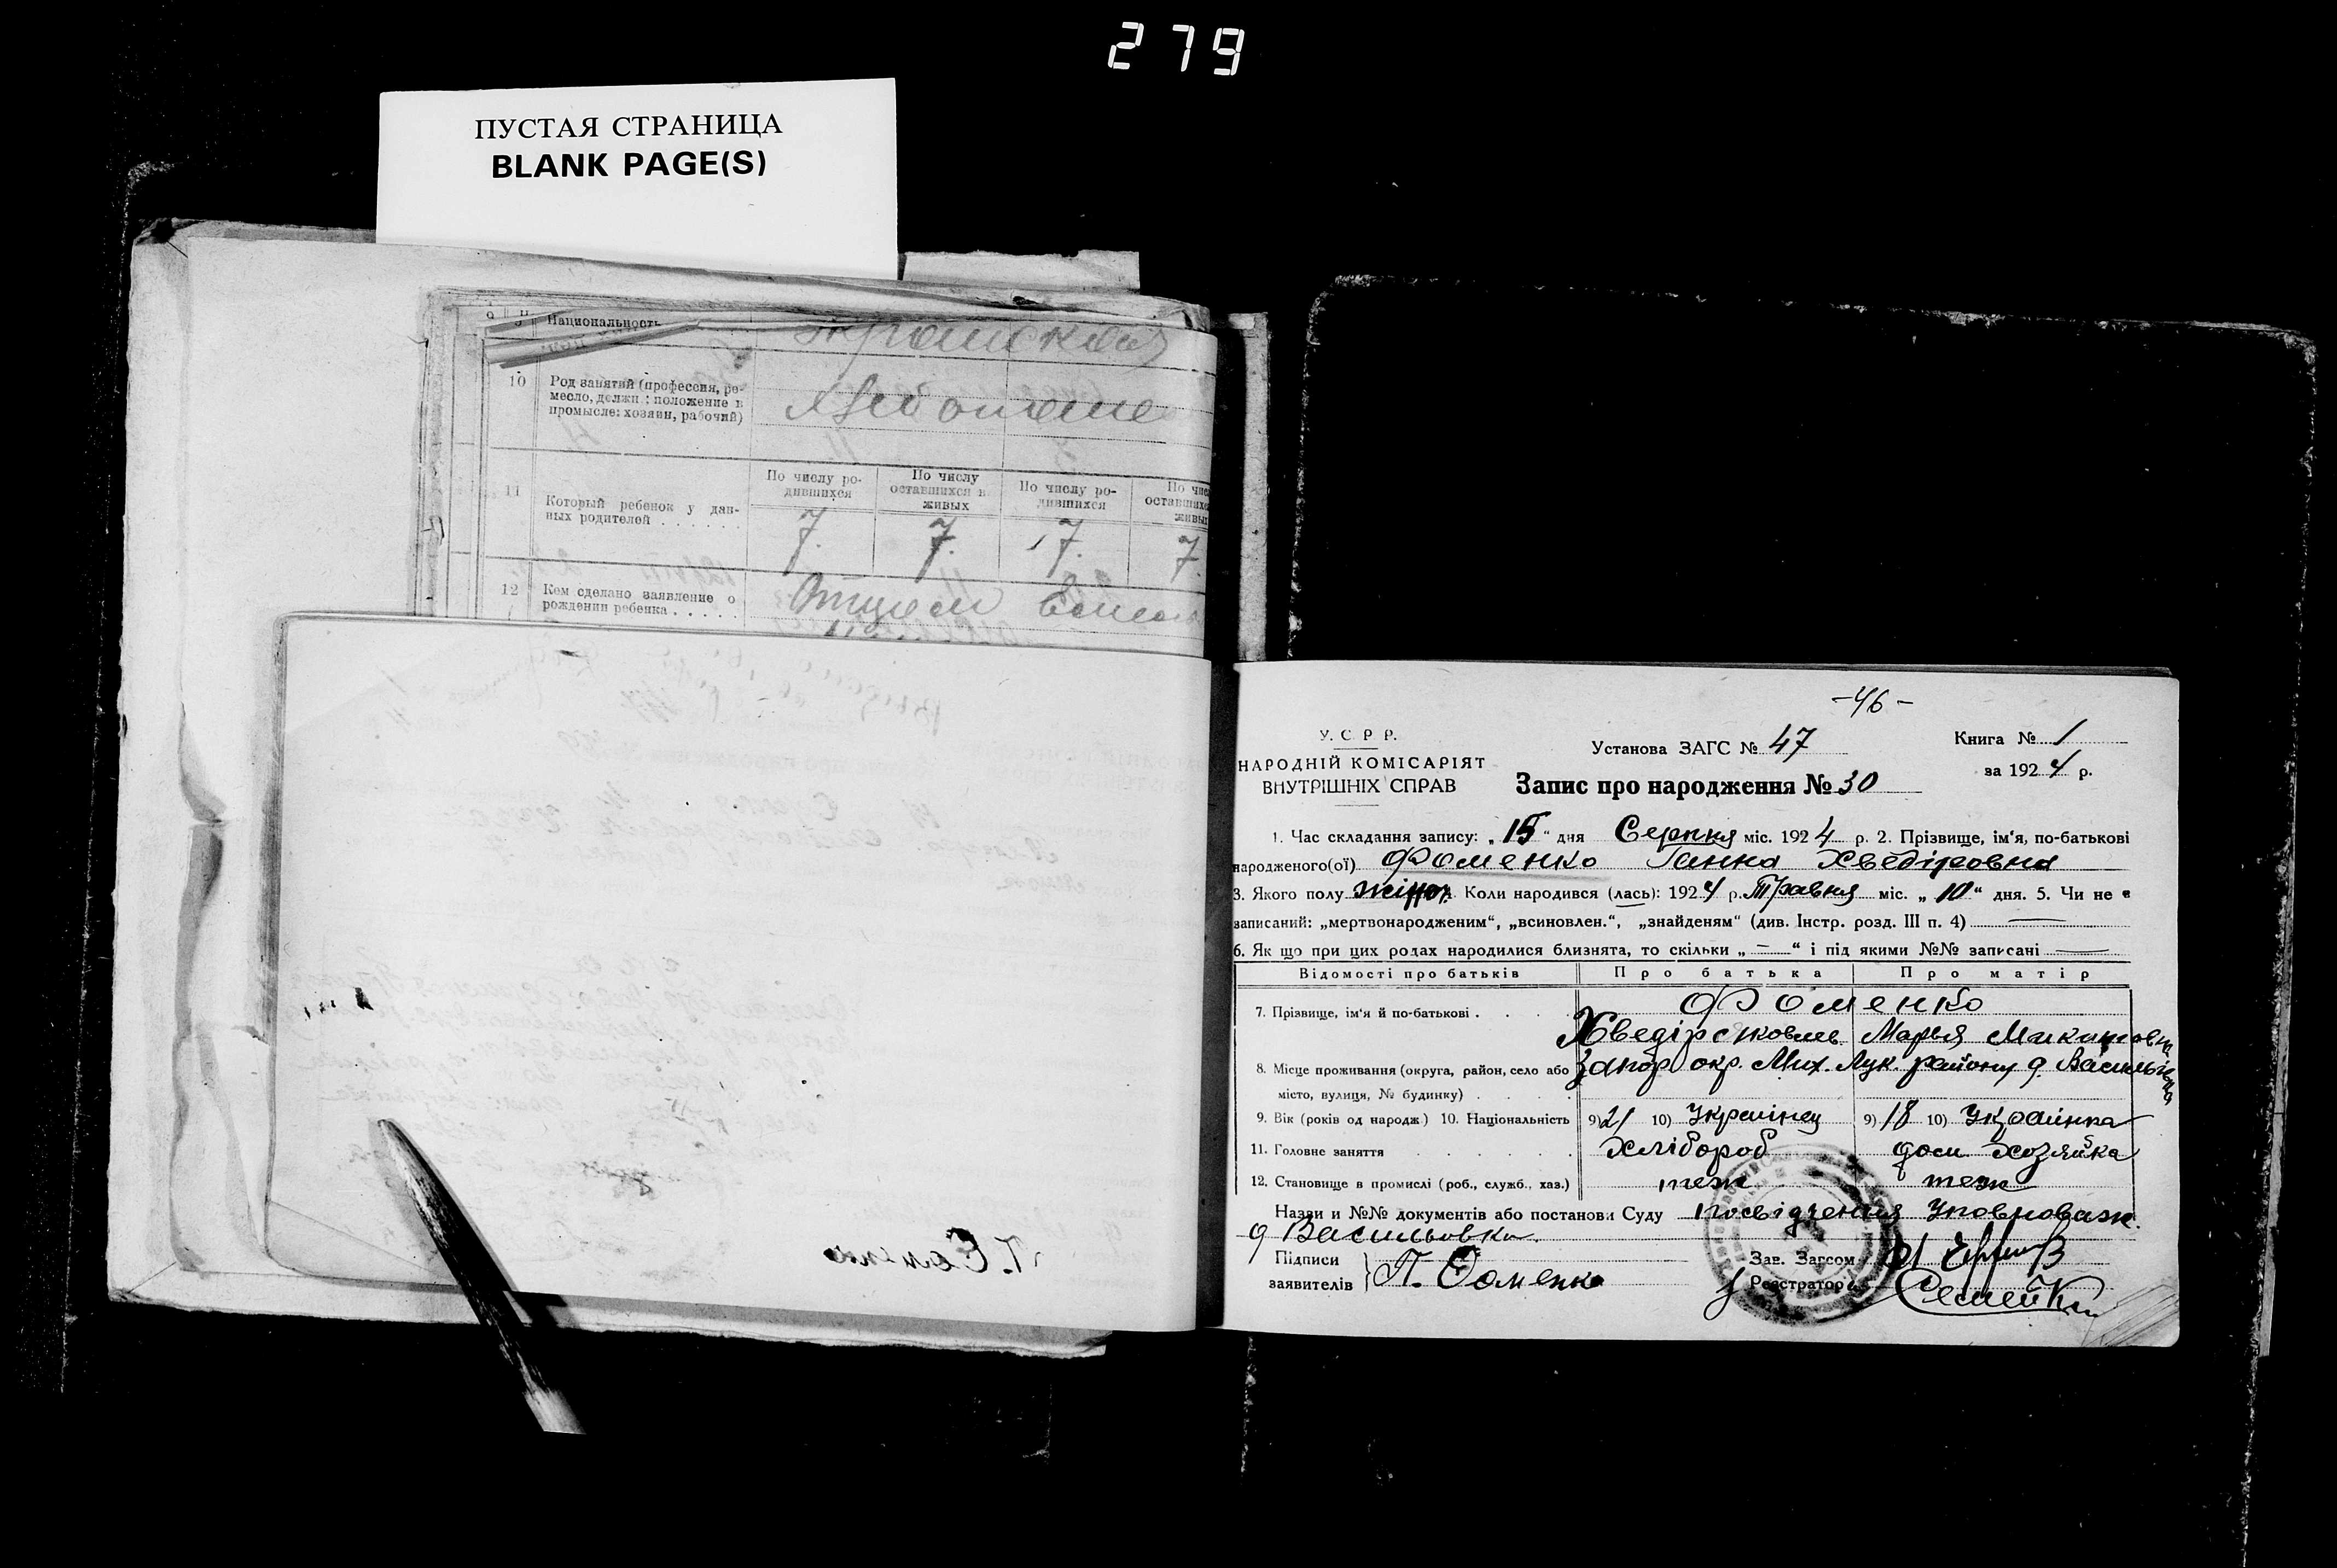 279
ПУСТАЯ СТРАНИЦА
BLANK PAGE(S)
9 Национальность
10 Род занятий (профессия, ре-
месло, должн.: положение в
промысле: хозяин, рабочий)
11 Который ребенок у дан-
ных родителей . . . . . . .
По числу ро-
дившихся
По числу
оставшихся в
живых
По числу ро-
дившихся
По чис
оставшихс
живы
7. 7. 17. 7.
12 Кем сделано заявление о
рождении ребенка . . . . .
Отцом
-46-
У. С. Р. Р.
НАРОДНІЙ КОМІСАРІЯТ
ВНУТРІШНІХ СПРАВ
Установа ЗАГС № 47
Запис про народження № 30
Книга № 1
за 1924 р.
1. Час складання запису: „15“ дня Серпня міс. 1924 р. 2. Прізвище, ім'я, по-батькові
народженого(ої) Фоменко Ганна Хведіровна
3. Якого полу жіноч. Коли народився (лась): 1924 р. Травня міс. „10“ дня. 5. Чи не є
записаний: „мертвонародженим“, „всиновлен.“, „знайденям“ (див. Інстр. розд. III п. 4)
6. Як що при цих родах народилися близнята, то скільки „—“ і під якими №№ записані
Відомості про батьків Про батька Про матір
7. Прізвище, ім'я й по-батькові . Фоменко
Хведір Яковлев Марья Микитовна
8. Місце проживання (округа, район, село або Запор окр. Мих. Лук. району д. Васильівка
місто, вулиця, № будинку) . . . .
9. Вік (років од народж.) 10. Національність 9) 21 10) Українец 9) 18 10) Українка
11. Головне заняття . . . . . . Хлібороб дом хозяйка
12. Становище в промислі (роб., служб., хаз.) теж теж
Назви и №№ документів або постанови Суду посвідчення Уповноваж.
д Васильовки.
Підписи
заявителів П. Фоменко
Зав. Загсом
Реєстратор Семейкин